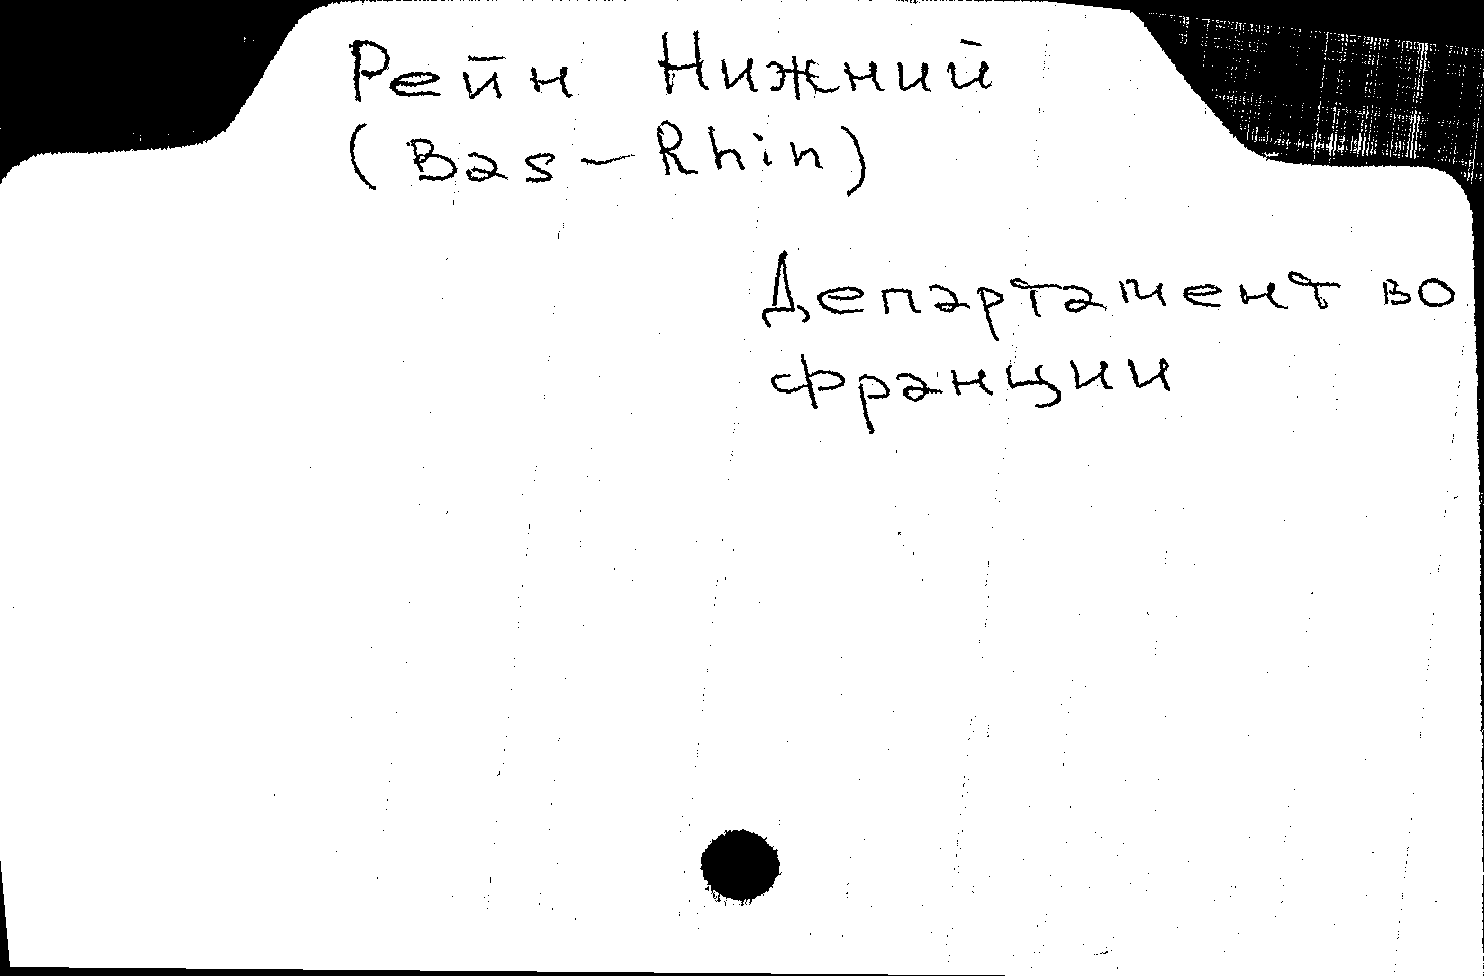 Рейн Нижний
(Bas-Rhin)
Департамент во
франции